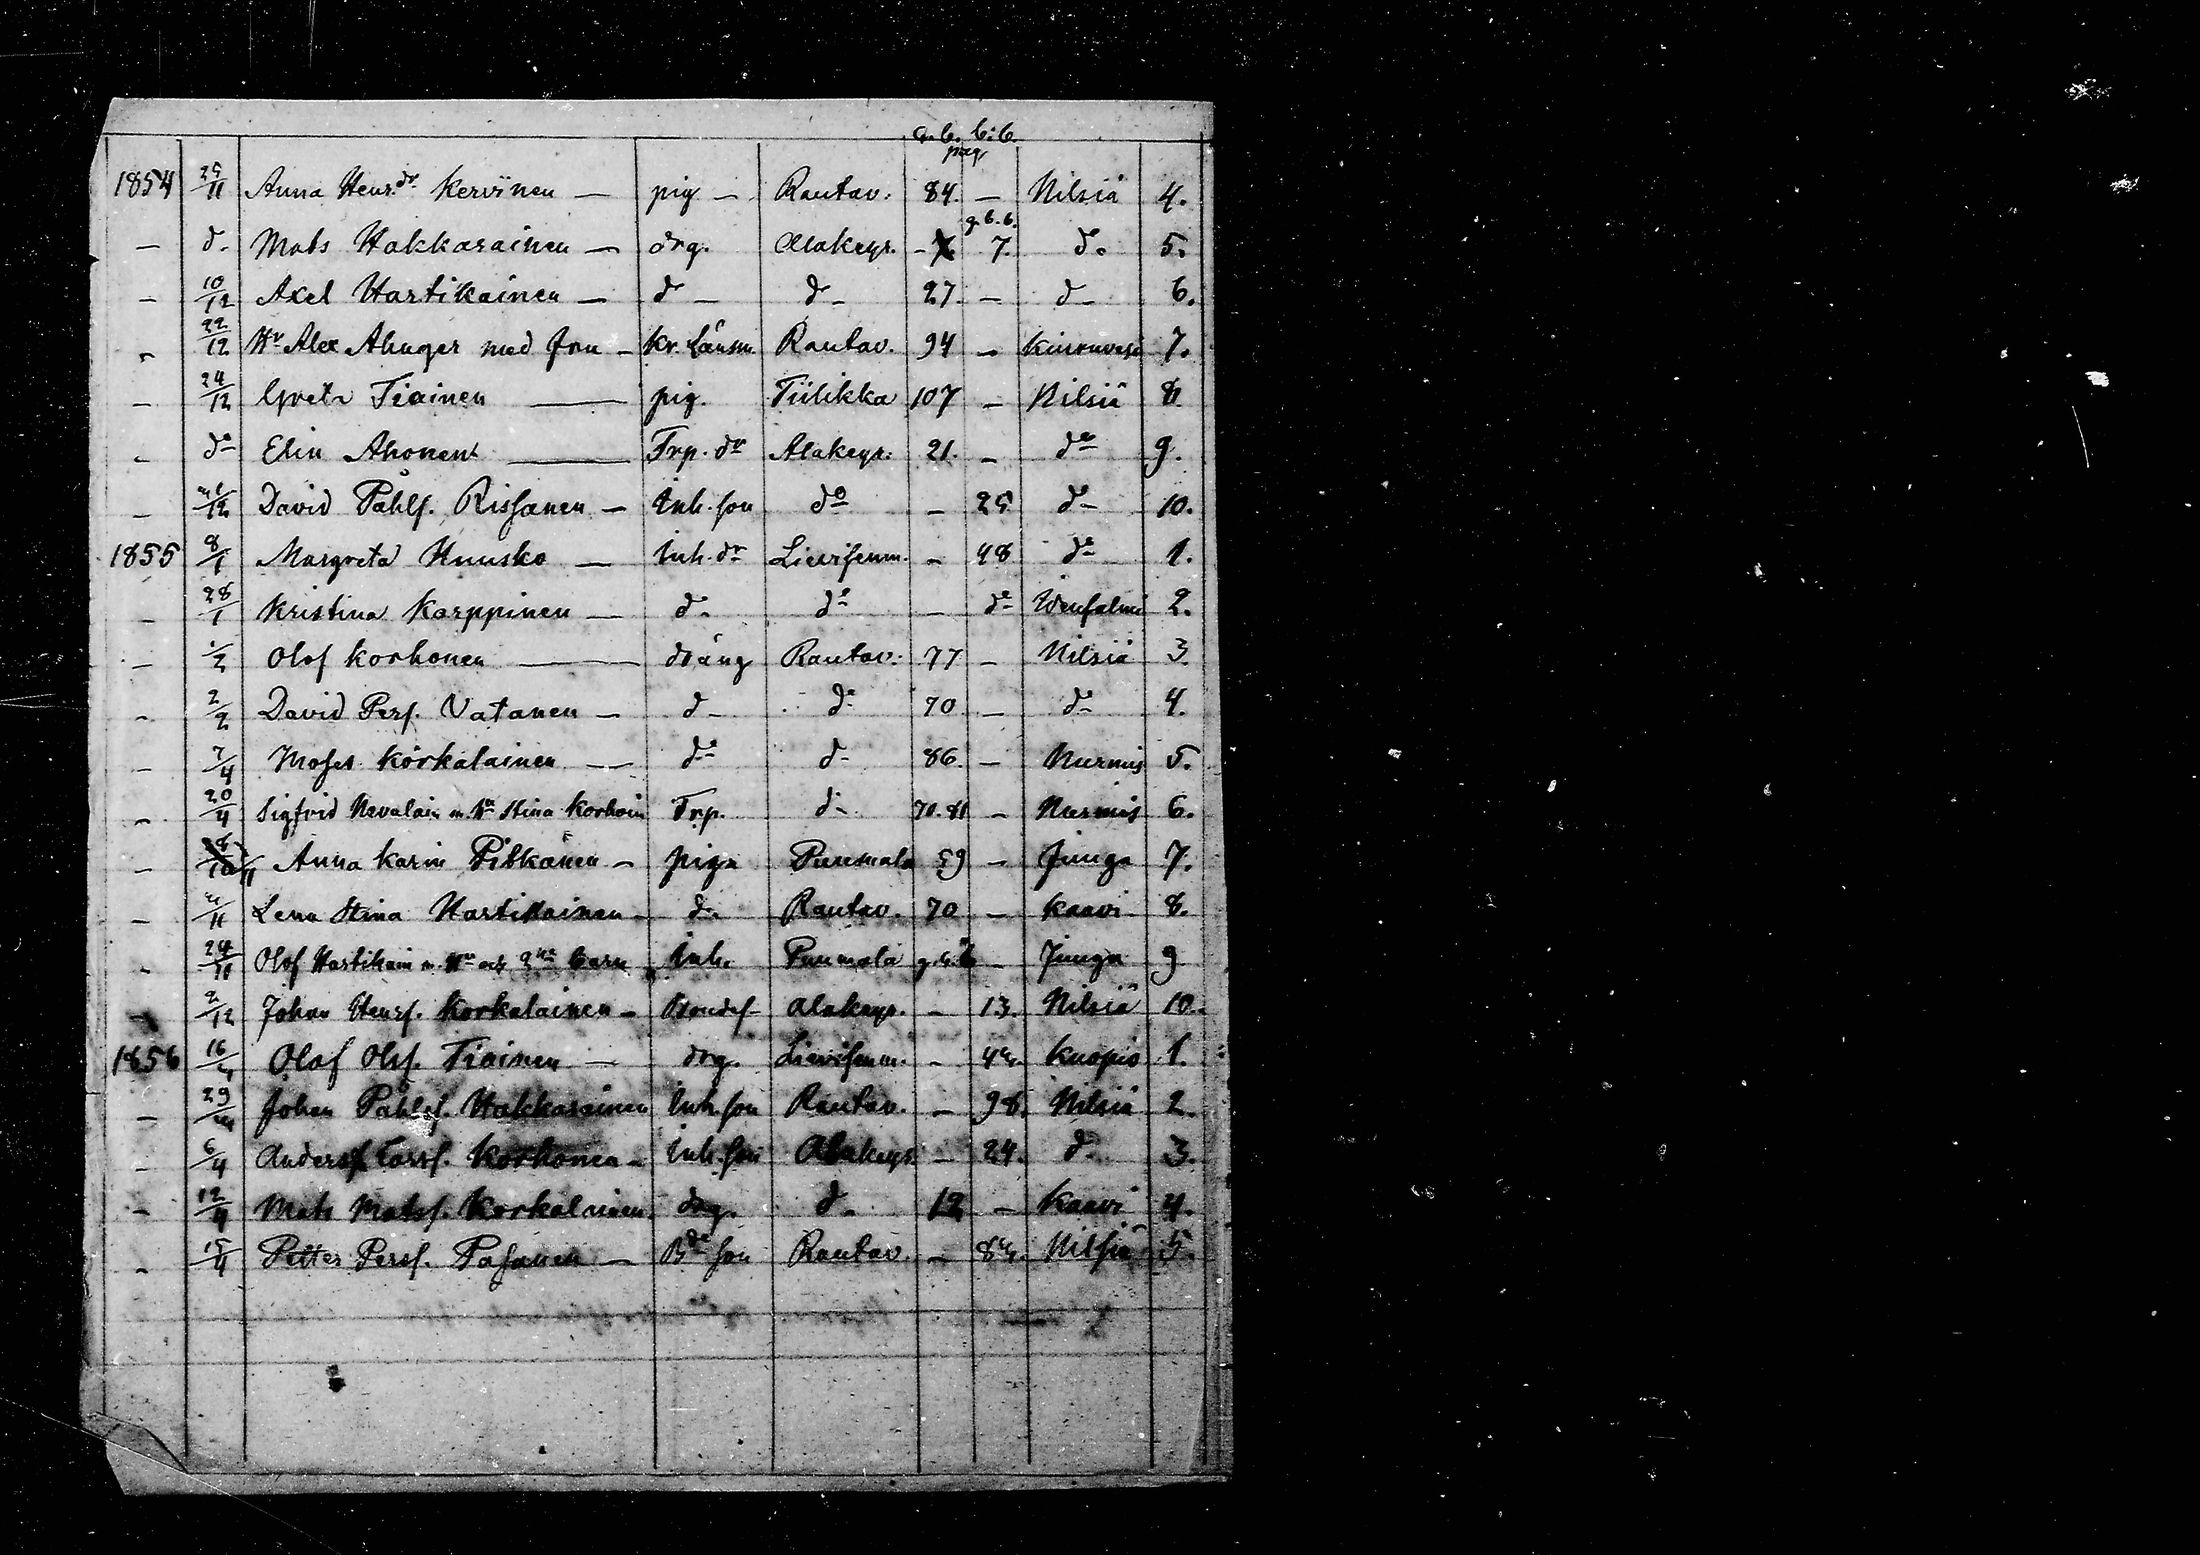 g. b. b: b.
pag
1854 25/11 Anna Hensdr Kervinen — pig — Rautav. 84. — Nilsiä 4.
g. b. b.
— d. Mats Hakkarainen — drg. Alakeys. - 7. do. 5.
- 10/12 Axel Hartikainen — d — d - 27. — d - 6.
- 22/12 Hr Alex Ahnger med fru - Kr. länsm. Rautav. 94 — Kiuruvesi 7.
— 24/12 Greta Tiainen — pig. Tiilikka 107 — Nilsiä 8.
- do Elin Ahonen — Trp. dr Alakeys. 21. — do 9.
— /12 David Påhls. Rissanen — Inh. son do — 25 do 10.
1855 8/1 Margreta Huusko — Inh. dr Lievisenm. - 48 do 1.
- 28/1 Kristina Karppinen — d. do — do Idensalmi 2.
— /2 Olof Korhonen — dräng Rautav. 77 — Nilsiä 3.
- 2/2 David Pers. Vatanen — d - do 70 — do 4.
- 7/4 Moses Korkalainen — do d - 86. — Nurmis 5.
- 20/4 Sigfrid Nevalain m. Hu Stina Korhoin Trp. d - 70. 81 — Nurmis 6.
- /11 Anna Karin Pitkänen — piga Puumala 59 — Juuga 7.
— /11 Lena Stina Hartikainen — d. Rautav. 70 — Kaavi 8.
- 24/11 Olof Hartikain m. Hu och 2ne barn Inh. Puumala g. b. b — Juuga 9
- 2/12 Johan Hens. Korkalainen — Bondes. Alakeys. - 13. Nilsiä 10.
1856 16/ Olof Ols. Tiainen — drg. Lievisenm. - Kuopio 1.
— 29/ Johan Påhls. Hakkarainen Inh. son Rautav. — 98. Nilsiä 2.
- 6/4 Anders Lars. Korhonen — Inh. son Alakeys. — 24. d. 3.
- 12/4 Mats Mats. Korkalainen. drg. d. 12 — Kaavi 4.
- 15/4 Petter Pers. Pasanen — Bde son Rautav. — Nilsiä 5.